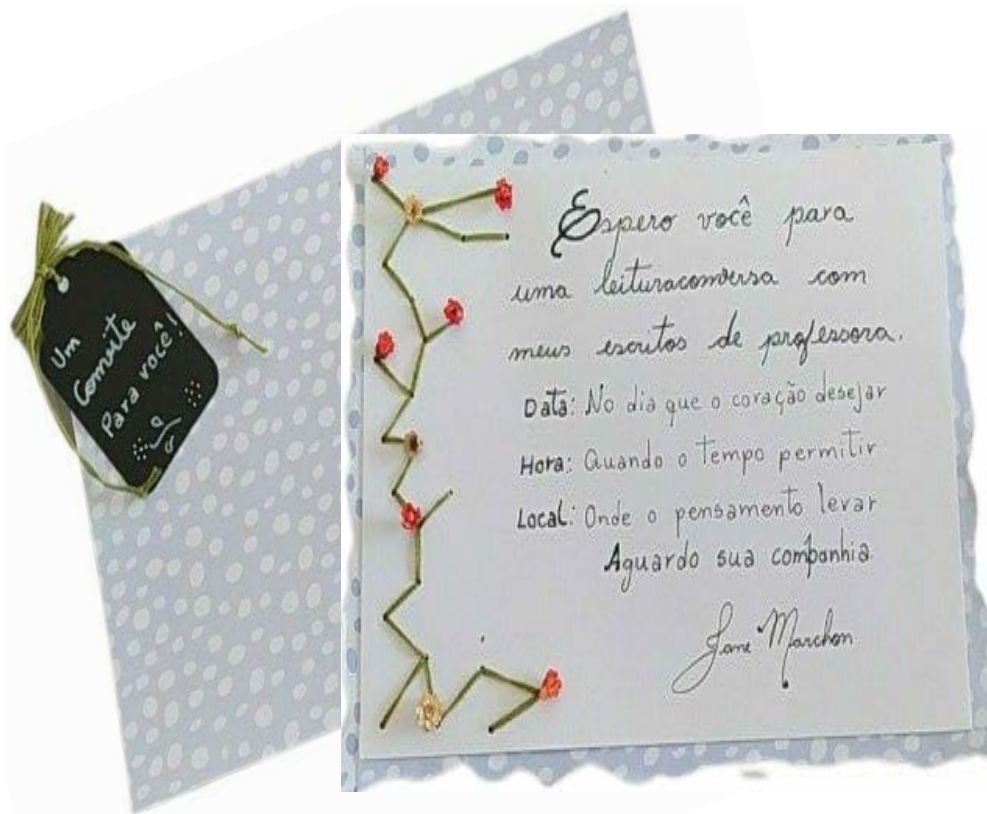 Um
Convite
Para você!
Espero você para
uma leituraconversa com
meus escritos de professora.
Data: No dia que o coração desejar
Hora: Quando o tempo permitir
Local: Onde o pensamento levar
Aguardo sua companhia.
Jane Marchon